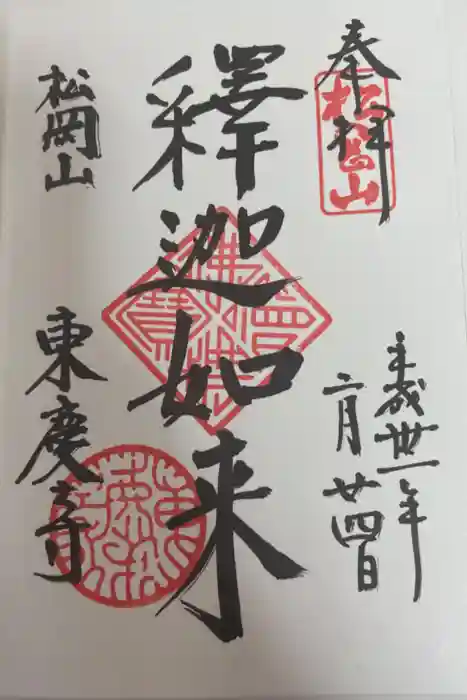 奉拝
松岡山
平成丗一年
二月廿四日
釋迦如来
松岡山
東慶寺